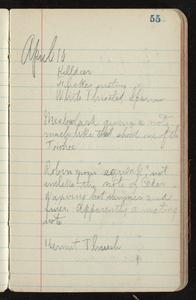 55
April 16
Killdeer
Flicker
White Throated Sparrow
Meadowlark giving a note
much like that short one of the
Robin giving "squeak", not
unlike the note of Cedar
Waxwing but stronger and
finer. Apparently a mating
note
Hermit Thrush